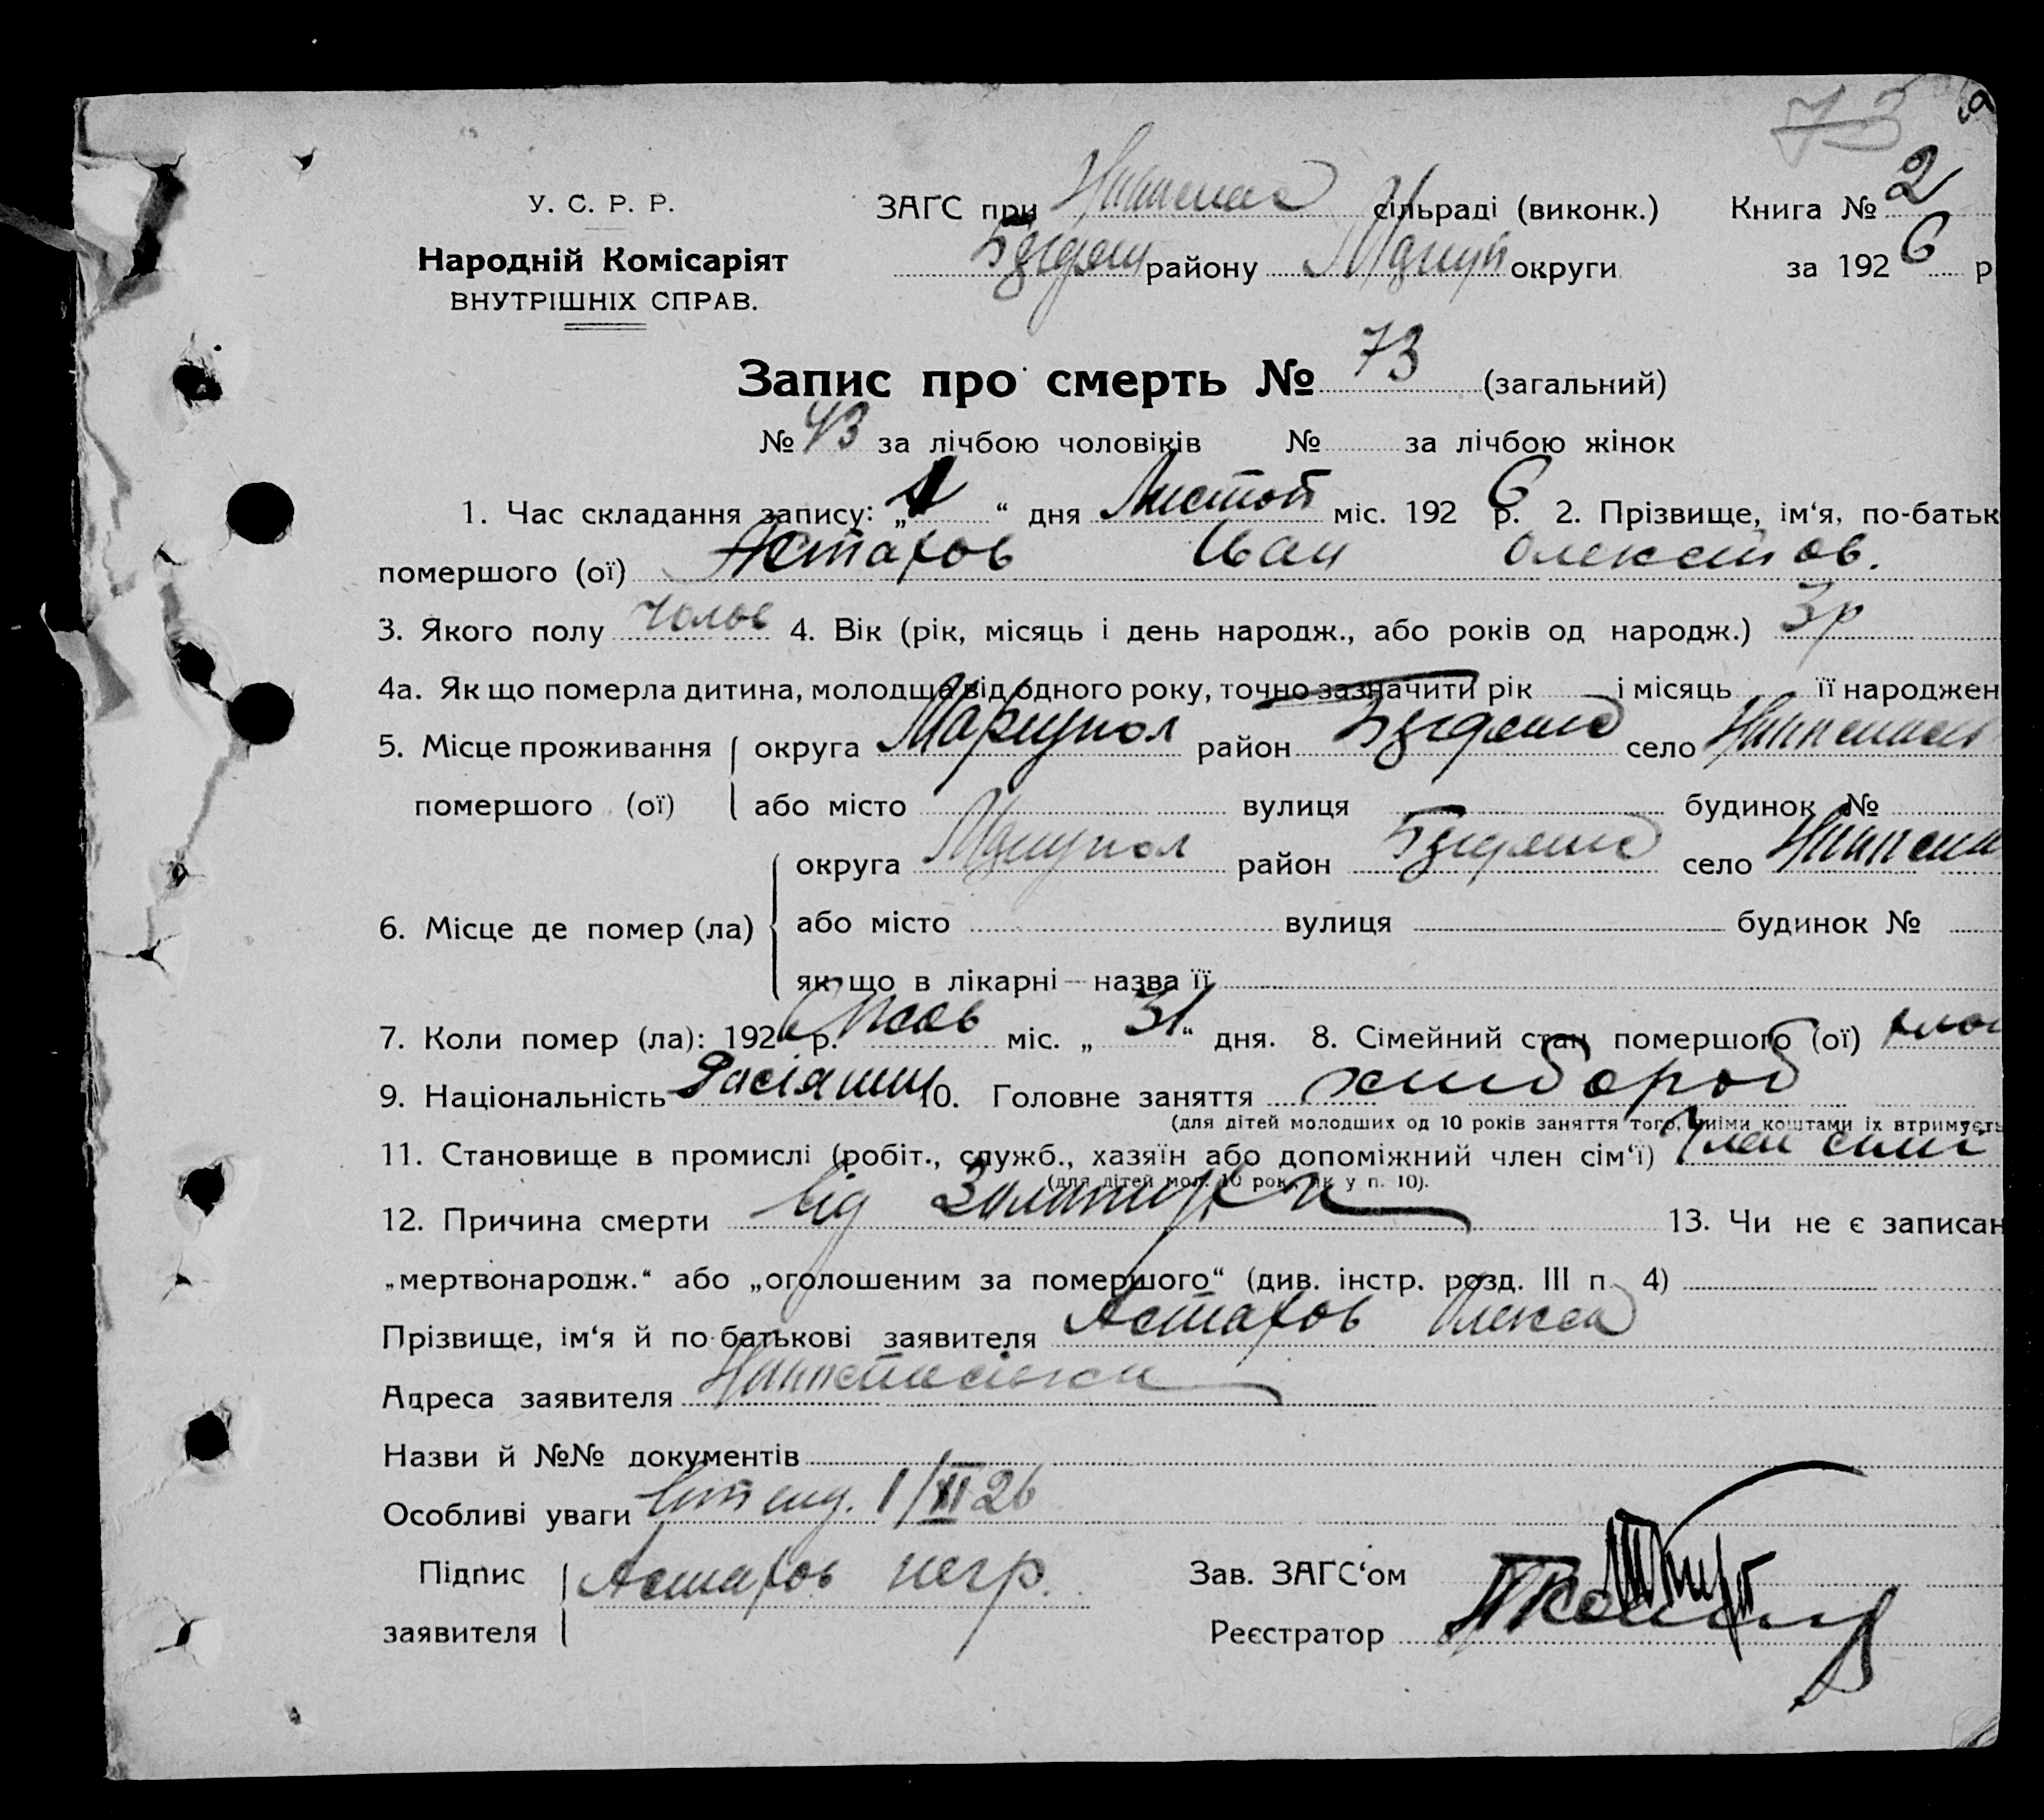 73
У. С. Р. Р.
Народній Комісаріят
ВНУТРІШНІХ СПРАВ.
ЗАГС при сільраді (виконк.) Книга № 2
району округи за 1926 р
Запис про смерть № 73 (загальний)
№ 43 за лічбою чоловіків № за лічбою жінок
1. Час складання запису: „1“ дня Листоп міс. 1926 р. 2. Прізвище, ім‘я, по-батьк
помершого (ої) Астахов Іван Олексійов.
3. Якого полу Чолов 4. Вік (рік, місяць і день народж., або років од народж.) 3р
4а. Як що померла дитина, молодша від одного року, точно зазначити рік і місяць її народжен
5. Місце проживання округа Маріупол район село
помершого (ої) або місто вулиця будинок №
округа Маріупол район село
6. Місце де помер (ла) або місто вулиця будинок №
як що в лікарні — назва її
7. Коли помер (ла): 1926 р. Жов міс. „31“ дня. 8. Сімейний стан помершого (ої)
9. Національність Росіянин 10. Головне заняття хлібороб
(для дітей молодших од 10 років заняття того, чиїми коштами їх втримуєть
11. Становище в промислі (робіт., служб., хазяїн або допоміжний член сім‘ї) Член сімї
(для дітей мол. 10 рок., як у п. 10).
12. Причина смерти від Золотухи 13. Чи не є записан
„мертвонародж.“ або „оголошеним за помершого“ (див. інстр. розд. III п. 4)
Прізвище, ім‘я й по-батькові заявителя Астахов Олекса
Адреса заявителя
Назви й №№ документів
Особливі уваги 1/XI 26
Підпис Астахов негр. Зав. ЗАГС‘ом
заявителя Реєстратор